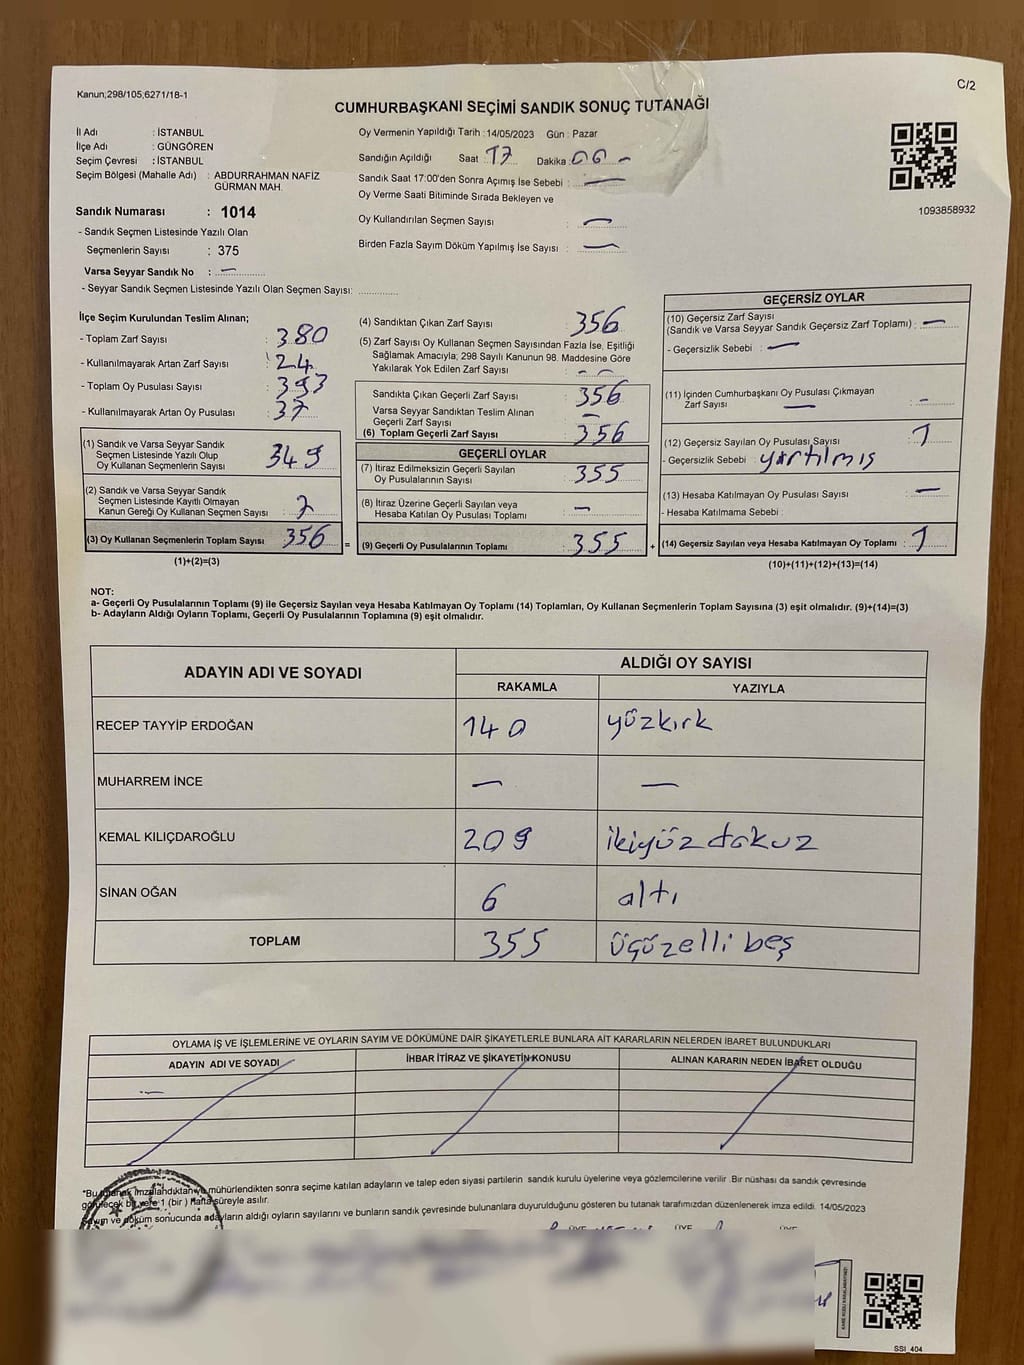 Kanun;298/105,6271/18-1
C/2
CUMHURBAŞKANI SEÇİMİ SANDIK SONUÇ TUTANAĞI
İl Adı : İSTANBUL
İlçe Adı : GÜNGÖREN
Seçim Çevresi : İSTANBUL
Seçim Bölgesi (Mahalle Adı) : ABDURRAHMAN NAFİZ
GÜRMAN MAH.
Sandık Numarası : 1014
- Sandık Seçmen Listesinde Yazılı Olan
Seçmenlerin Sayısı : 375
Varsa Seyyar Sandık No : —
- Seyyar Sandık Seçmen Listesinde Yazılı Olan Seçmen Sayısı:
Oy Vermenin Yapıldığı Tarih : 14/05/2023 Gün : Pazar
Sandığın Açıldığı Saat : 17 Dakika : 00 -
Sandık Saat 17:00'den Sonra Açımış İse Sebebi : —
Oy Verme Saati Bitiminde Sırada Bekleyen ve
Oy Kullandırılan Seçmen Sayısı : —
Birden Fazla Sayım Döküm Yapılmış İse Sayısı : —
1093858932
İlçe Seçim Kurulundan Teslim Alınan;
- Toplam Zarf Sayısı : 380
- Kullanılmayarak Artan Zarf Sayısı : 24
- Toplam Oy Pusulası Sayısı : 393
- Kullanılmayarak Artan Oy Pusulası : 37
(1) Sandık ve Varsa Seyyar Sandık
Seçmen Listesinde Yazılı Olup
Oy Kullanan Seçmenlerin Sayısı : 349
(2) Sandık ve Varsa Seyyar Sandık
Seçmen Listesinde Kayıtlı Olmayan
Kanun Gereği Oy Kullanan Seçmen Sayısı : 7
(3) Oy Kullanan Seçmenlerin Toplam Sayısı : 356 =
(1)+(2)=(3)
(4) Sandıktan Çıkan Zarf Sayısı : 356
(5) Zarf Sayısı Oy Kullanan Seçmen Sayısından Fazla İse, Eşitliği
Sağlamak Amacıyla; 298 Sayılı Kanunun 98. Maddesine Göre
Yakılarak Yok Edilen Zarf Sayısı : - -
Sandıkta Çıkan Geçerli Zarf Sayısı : 356
Varsa Seyyar Sandıktan Teslim Alınan
Geçerli Zarf Sayısı : —
(6) Toplam Geçerli Zarf Sayısı : 356
GEÇERLİ OYLAR
(7) İtiraz Edilmeksizin Geçerli Sayılan
Oy Pusulalarının Sayısı : 355
(8) İtiraz Üzerine Geçerli Sayılan veya
Hesaba Katılan Oy Pusulası Toplamı : —
(9) Geçerli Oy Pusulalarının Toplamı : 355 +
GEÇERSİZ OYLAR
(10) Geçersiz Zarf Sayısı
(Sandık ve Varsa Seyyar Sandık Geçersiz Zarf Toplamı) : —
- Geçersizlik Sebebi : —
(11) İçinden Cumhurbaşkanı Oy Pusulası Çıkmayan
Zarf Sayısı — : -
(12) Geçersiz Sayılan Oy Pusulası Sayısı : 1
- Geçersizlik Sebebi : yırtılmış
(13) Hesaba Katılmayan Oy Pusulası Sayısı : —
- Hesaba Katılmama Sebebi :
(14) Geçersiz Sayılan veya Hesaba Katılmayan Oy Toplamı : 1
(10)+(11)+(12)+(13)=(14)
NOT:
a- Geçerli Oy Pusulalarının Toplamı (9) ile Geçersiz Sayılan veya Hesaba Katılmayan Oy Toplamı (14) Toplamları, Oy Kullanan Seçmenlerin Toplam Sayısına (3) eşit olmalıdır. (9)+(14)=(3)
b- Adayların Aldığı Oyların Toplamı, Geçerli Oy Pusulalarının Toplamına (9) eşit olmalıdır.
ADAYIN ADI VE SOYADI
ALDIĞI OY SAYISI
RAKAMLA YAZIYLA
RECEP TAYYİP ERDOĞAN 140 yüzkırk
MUHARREM İNCE — —
KEMAL KILIÇDAROĞLU 209 ikiyüz dokuz
SİNAN OĞAN 6 altı
TOPLAM 355 üçyüzelli beş
OYLAMA İŞ VE İŞLEMLERİNE VE OYLARIN SAYIM VE DÖKÜMÜNE DAİR ŞİKAYETLERLE BUNLARA AİT KARARLARIN NELERDEN İBARET BULUNDUKLARI
ADAYIN ADI VE SOYADI İHBAR İTİRAZ VE ŞİKAYETİN KONUSU ALINAN KARARIN NEDEN İBARET OLDUĞU
*Bu tutanak imzalandıktan ve mühürlendikten sonra seçime katılan adayların ve talep eden siyasi partilerin sandık kurulu üyelerine veya gözlemcilerine verilir. Bir nüshası da sandık çevresinde
görülecek bir yere 1 (bir) hafta süreyle asılır.
Sayım ve döküm sonucunda adayların aldığı oyların sayılarını ve bunların sandık çevresinde bulunanlara duyurulduğunu gösteren bu tutanak tarafımızdan düzenlenerek imza edildi. 14/05/2023
ÜYE ÜYE ÜYE
SSİ_404